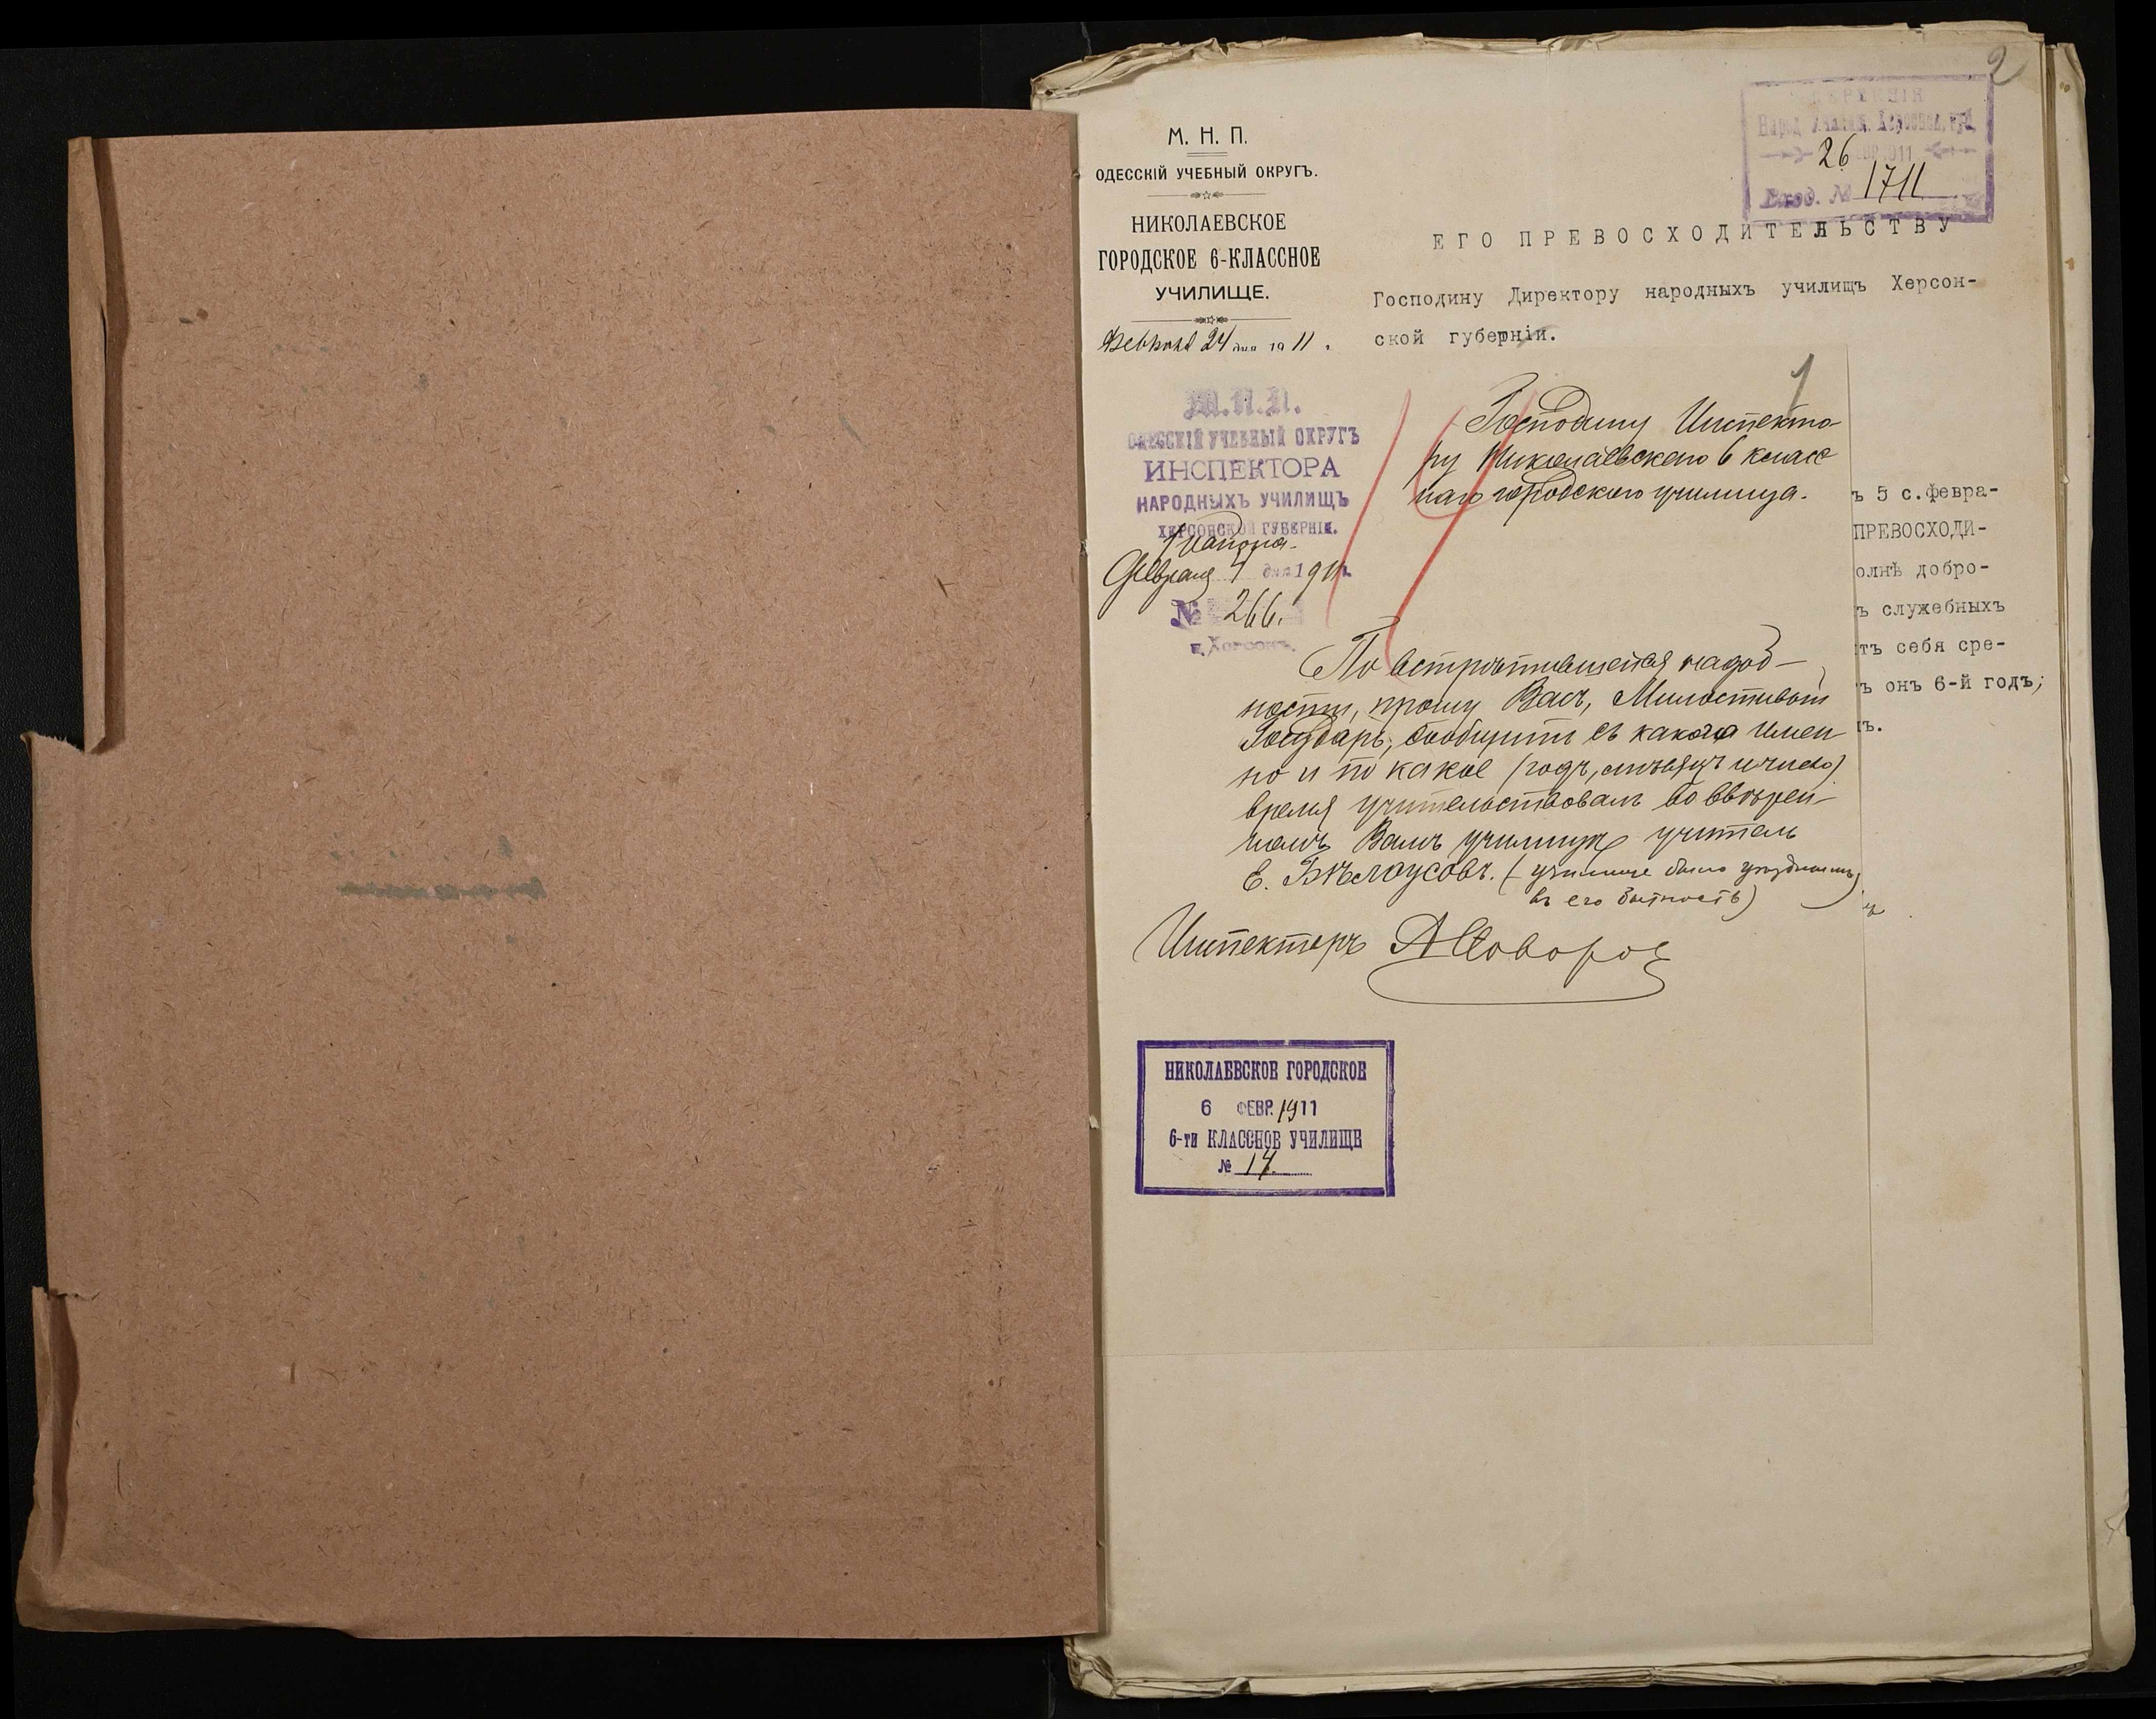 2
ДИРЕКЦІЯ
Народ. Училищ. Херсонск. губ.
26 ФЕВР. 1911
Вход. № 1711
М. Н. П.
ОДЕССКІЙ УЧЕБНЫЙ ОКРУГЪ.
НИКОЛАЕВСКОЕ
ГОРОДСКОЕ 6-КЛАССНОЕ
УЧИЛИЩЕ.
Февраля 24 дня 1911 г.
ЕГО ПРЕВОСХОДИТЕЛЬСТВУ
Господину Директору народныхъ училищъ Херсон-
ской губерніи.
1
М.Н.П.
ОДЕССКІЙ УЧЕБНЫЙ ОКРУГЪ
ИНСПЕКТОРА
НАРОДНЫХЪ УЧИЛИЩЪ
ХЕРСОНСКОЙ ГУБЕРНІИ.
1 района.
Февраля 4 дня 1911 г.
№ 266.
г. Херсонъ.
Господину Инспекто-
ру Николаевскаго 6 класс
наго городского училища.
По встрѣтившейся надоб-
ности, прошу Васъ, Милостивый
Государь, сообщить съ какого имен
но и по какое (годъ, мѣсяцъ и число)
время учительствовалъ во ввѣрен-
номъ Вамъ училищѣ учитель
Е. Бѣлоусовъ. (училище было
въ его бытность)
Инспекторъ
ъ 5 с.февра-
ПРЕВОСХОДИ-
олнѣ добро-
ъ служебныхъ
тъ себя сре-
ъ онъ 6-й годъ;
ъ.
НИКОЛАЕВСКОЕ ГОРОДСКОЕ
6 ФЕВР. 1911
6-ти КЛАССНОЕ УЧИЛИЩЕ
№ 17.